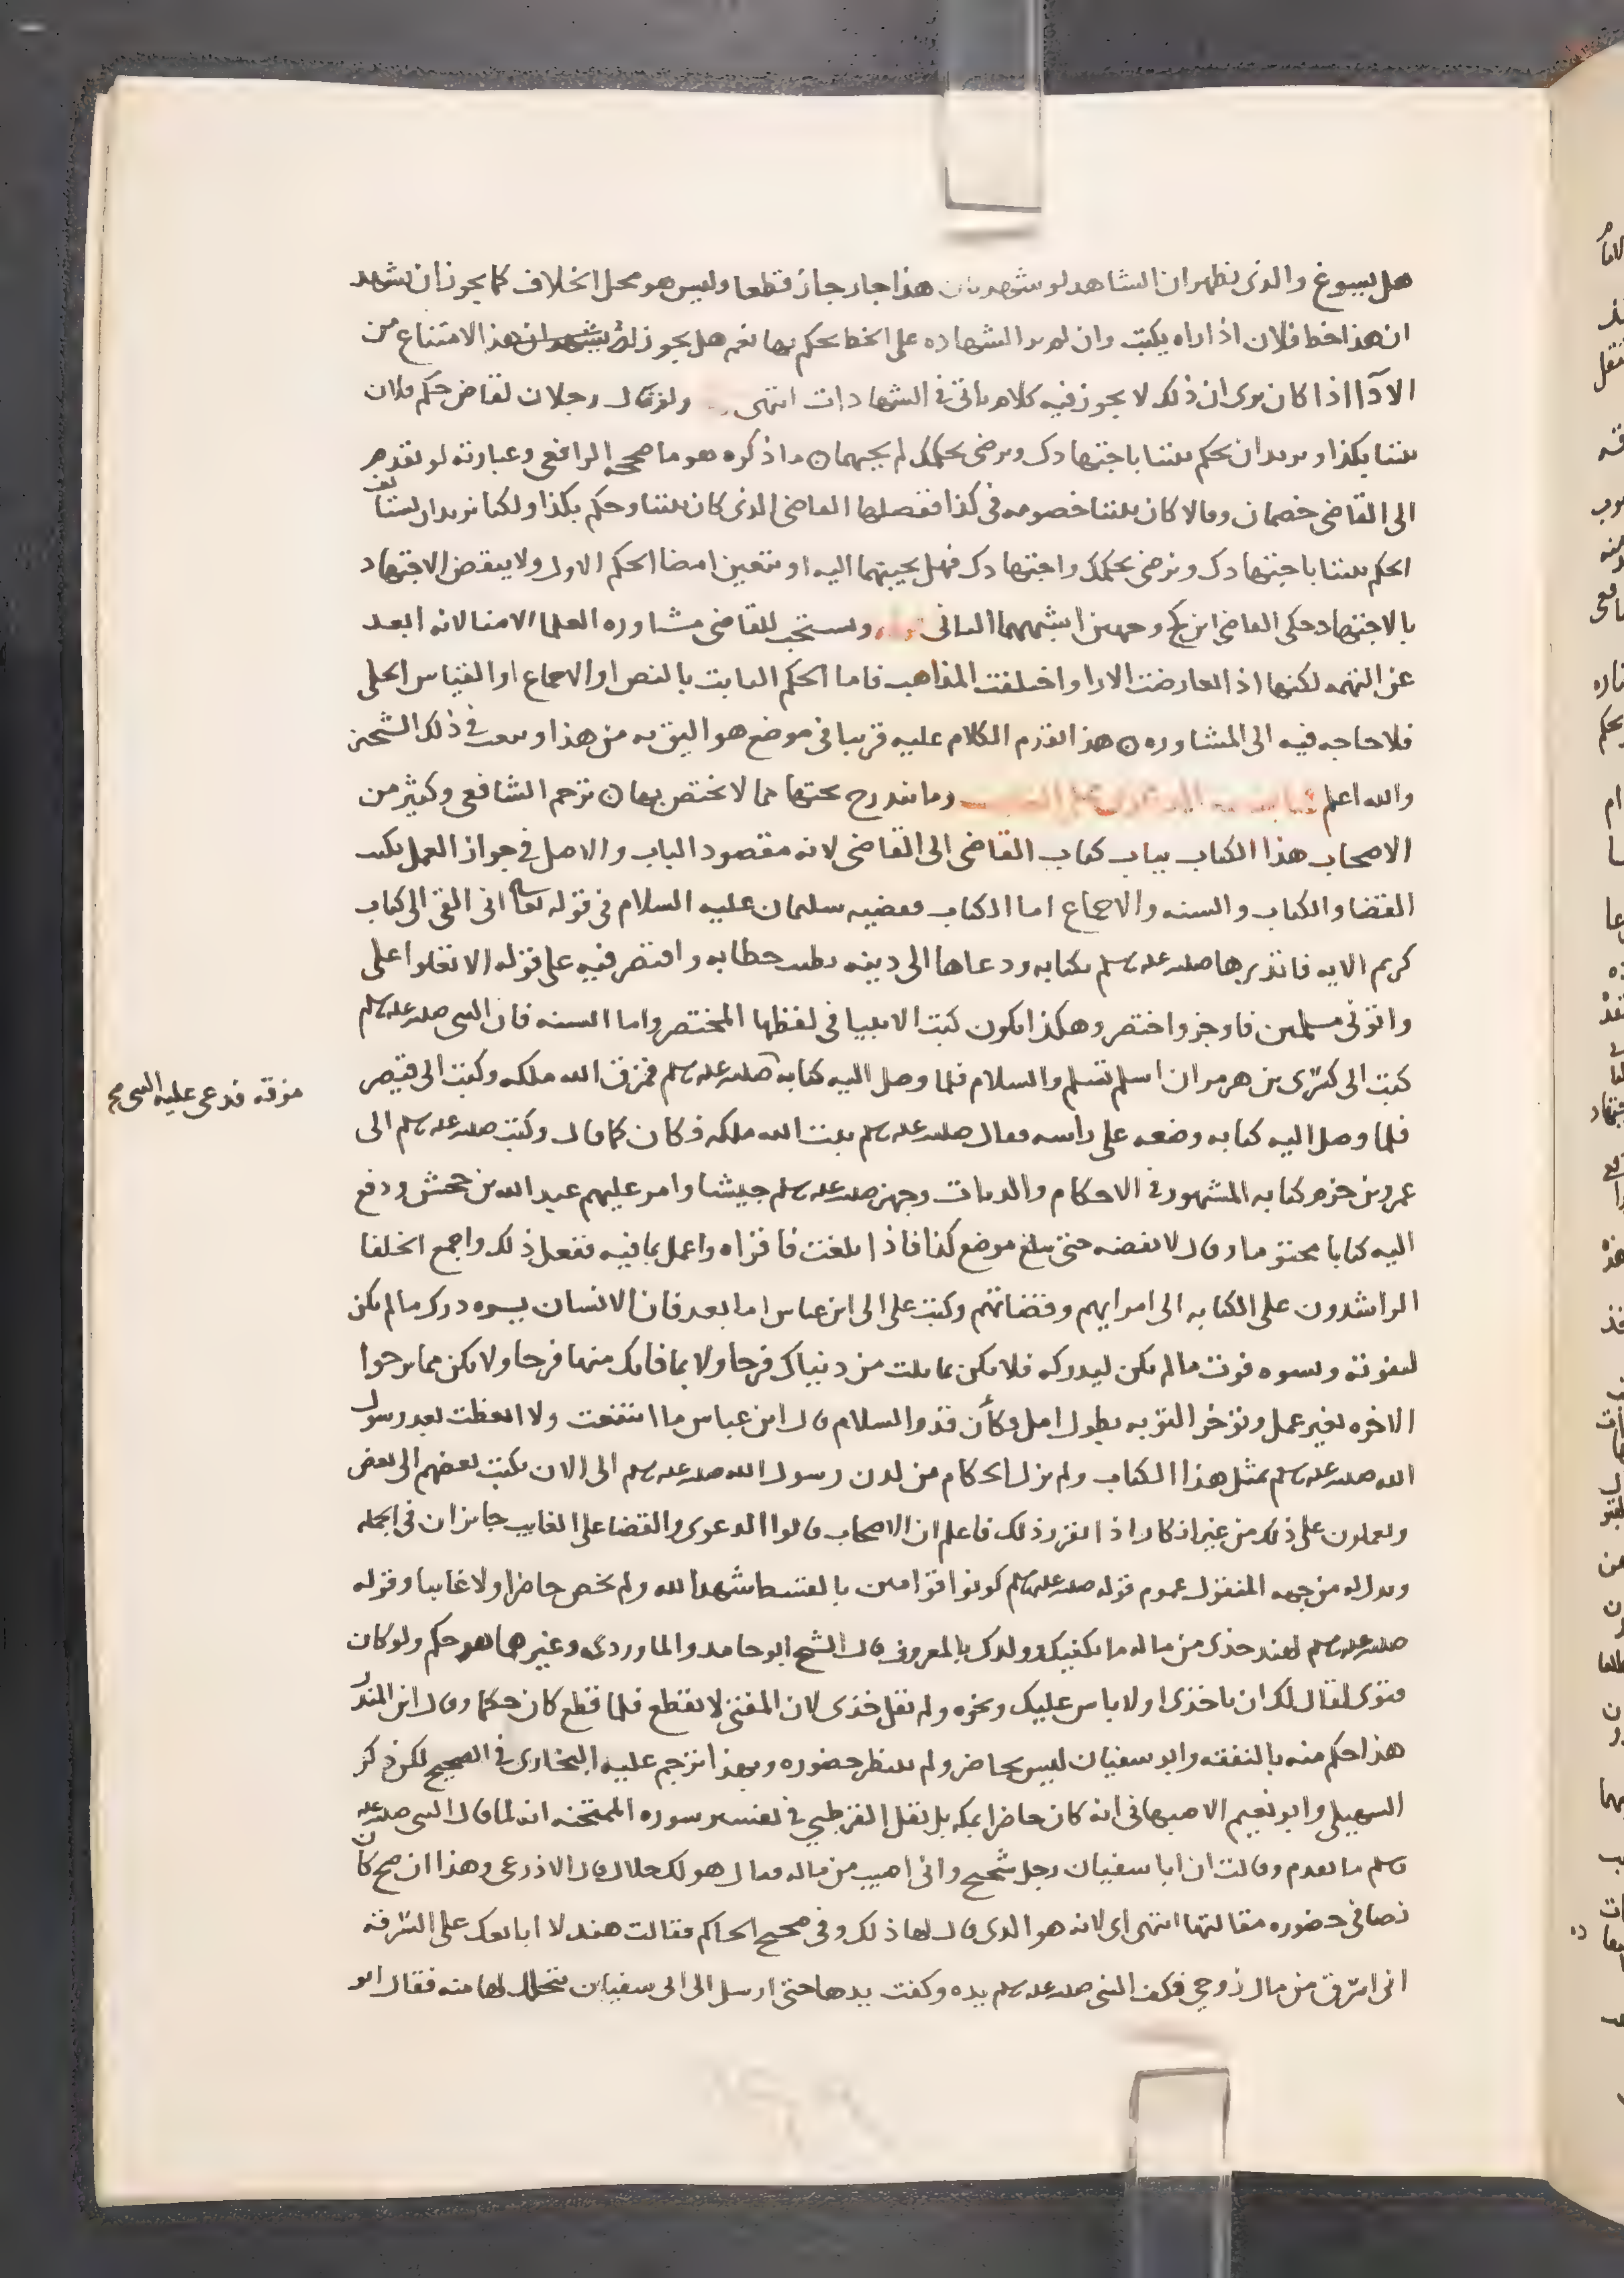 هل يسوغ والذي يظهر ان الشاهد لو شهد بان هذا جار جاز قطعا وليس هو محل الخلاف كما يجوز ان يشهد
ان هذا خط فلان اذا راه يكتب وان لم ير الشهاده على الخط يحكم بها نعم هل يجوز له هذا الامتناع من
الادا اذا كان يرى ان ذلك لا يجوز فيه كلام ياتي في الشهادات انتهى ولو قال رجلان لقاض حكم فلان
بيننا بكذا ويريد ان يحكم بيننا باجتهادك ويرضى بحكمك لم يجبهما ما ذكره هو ما صححه الرافعي وعبارته لو تقدم
الى القاضي خصمان وقالا كان بيننا خصومه في كذا ففصلها القاضي الذي كان بيننا وحكم بكذا ولكنا نريد ان تستانف
الحكم بيننا باجتهادك ونرضى بحكمك واجتهادك فهل يجيبهما اليه او يتعين امضا الحكم الاول ولا ينقض الاجتهاد
بالاجتهاد حكى القاضي ابن كج وجهين اشبههما الثاني ويستحب للقاضي مشاوره العلما الامنا لانه ابعد
عن التهمه لكنها اذا تعارضت الارا واختلفت المذاهب فاما الحكم الثابت بالنص او الاجماع او القياس الجلي
فلا حاجه فيه الى المشاوره هذا تقدم الكلام عليه قريبا في موضع هو اليق به من هذا وتبعت في ذلك الشيخين
والله اعلم وما يندرج تحتها مما لا يختص بها ترجم الشافعي وكثير من
الاصحاب هذا الكتاب بباب كتاب القاضي الى القاضي لانه مقصود الباب والاصل في جواز العمل بكتب
القضا والكتاب والسنه والاجماع اما الكتاب فقضيه سليمان عليه السلام في قوله تعالى اني القي الى كتاب
كريم الايه فانذرها صلى الله عليه وسلم بكتابه ودعاها الى دينه بطيب خطابه واقتصر فيه على قوله الا تعلوا على
واتوني مسلمين فاوجز واختصر وهكذا يكون كتب الانبيا في لفظها المختصر واما السنه فان النبي صلى الله عليه وسلم
كتب الى كسرى بن هرمز ان اسلم تسلم والسلام فلما وصل اليه كتابه صلى الله عليه وسلم فمزق الله ملكه وكتب الى قيصر
مزقه فدعى عليه النبي صح
فلما وصل اليه كتابه وضعه على راسه فقال صلى الله عليه وسلم يثبت الله ملكه فكان كما قال وكتب صلى الله عليه وسلم الى
عمرو بن حزم كتابه المشهور في الاحكام والديات وجهز صلى الله عليه وسلم جيشا وامر عليهم عبد الله بن جحش ودفع
اليه كتابا مختوما وقال لا تفضه حتى تبلغ موضع كذا فاذا بلغت فاقراه واعمل بما فيه ففعل ذلك واجمع الخلفا
الراشدون على الكتابه الى امرايهم وقضاتهم وكتب على الى ابن عباس اما بعد فان الانسان يسره درك ما لم يكن
ليفوته ويسوه فوت ما لم يكن ليدركه فلا تكن بما نلت من دنياك فرحا ولا بما فاتك منها فرحا ولا تكن مما يرجوا
الاخره بغير عمل ويؤخر التوبه بطول امل وكأن قد والسلام قال ابن عباس ما انتفعت ولا اتعظت بعد رسول
الله صلى الله عليه وسلم بمثل هذا الكتاب ولم يزل الحكام من لدن رسول الله صلى الله عليه وسلم الى الان يكتب بعضهم الى بعض
ويعملون على ذلك من غير انكار اذا تقرر ذلك فاعلم ان الاصحاب قالوا الدعوى والقضا على الغايب جايزان في الجمله
ويدل له من جهه المنقول عموم قوله صلى الله عليه وسلم كونوا قوامين بالقسط شهدا لله ولم يخص حاضرا ولا غايبا وقوله
صلى الله عليه وسلم لهند خذي من ماله ما يكفيك وولدك بالمعروف قال الشيخ ابو حامد والماوردي وغيرهما هو حكم ولو كان
فتوى لقال لك ان تاخذي او لا باس عليك ونحوه ولم يقل خذي لان المفتي لا يقطع فلما قطع كان حكما وقال ابن المنذر
هذا حكم منه بالنفقه وابو سفيان ليس بحاضر ولم ينتظر حضوره وبهذا ترجم عليه البخاري في الصحيح لكن ذكر
السهيلي وابو نعيم الاصبهاني انه كان حاضرا بمكه بل نقل القرطبي في تفسير سوره الممتحنه انه لما قال النبي صلى الله عليه
وسلم ما تقدم وقالت ان ابا سفيان رجل شحيح واني اصيب من ماله فقال هو لك حلال قال الاذرعي وهذا ان صح كان
نصا في حضوره مقالتها انتهى اي لانه هو الذي قال لها ذلك وفي صحيح الحاكم فقالت هند لا ابايعك على السرقه
اني اسرق من مال زوجي فكف النبي صلى الله عليه وسلم يده وكفت يدها حتى ارسل الى ابي سفيان يتحلل لها منه فقال ابو